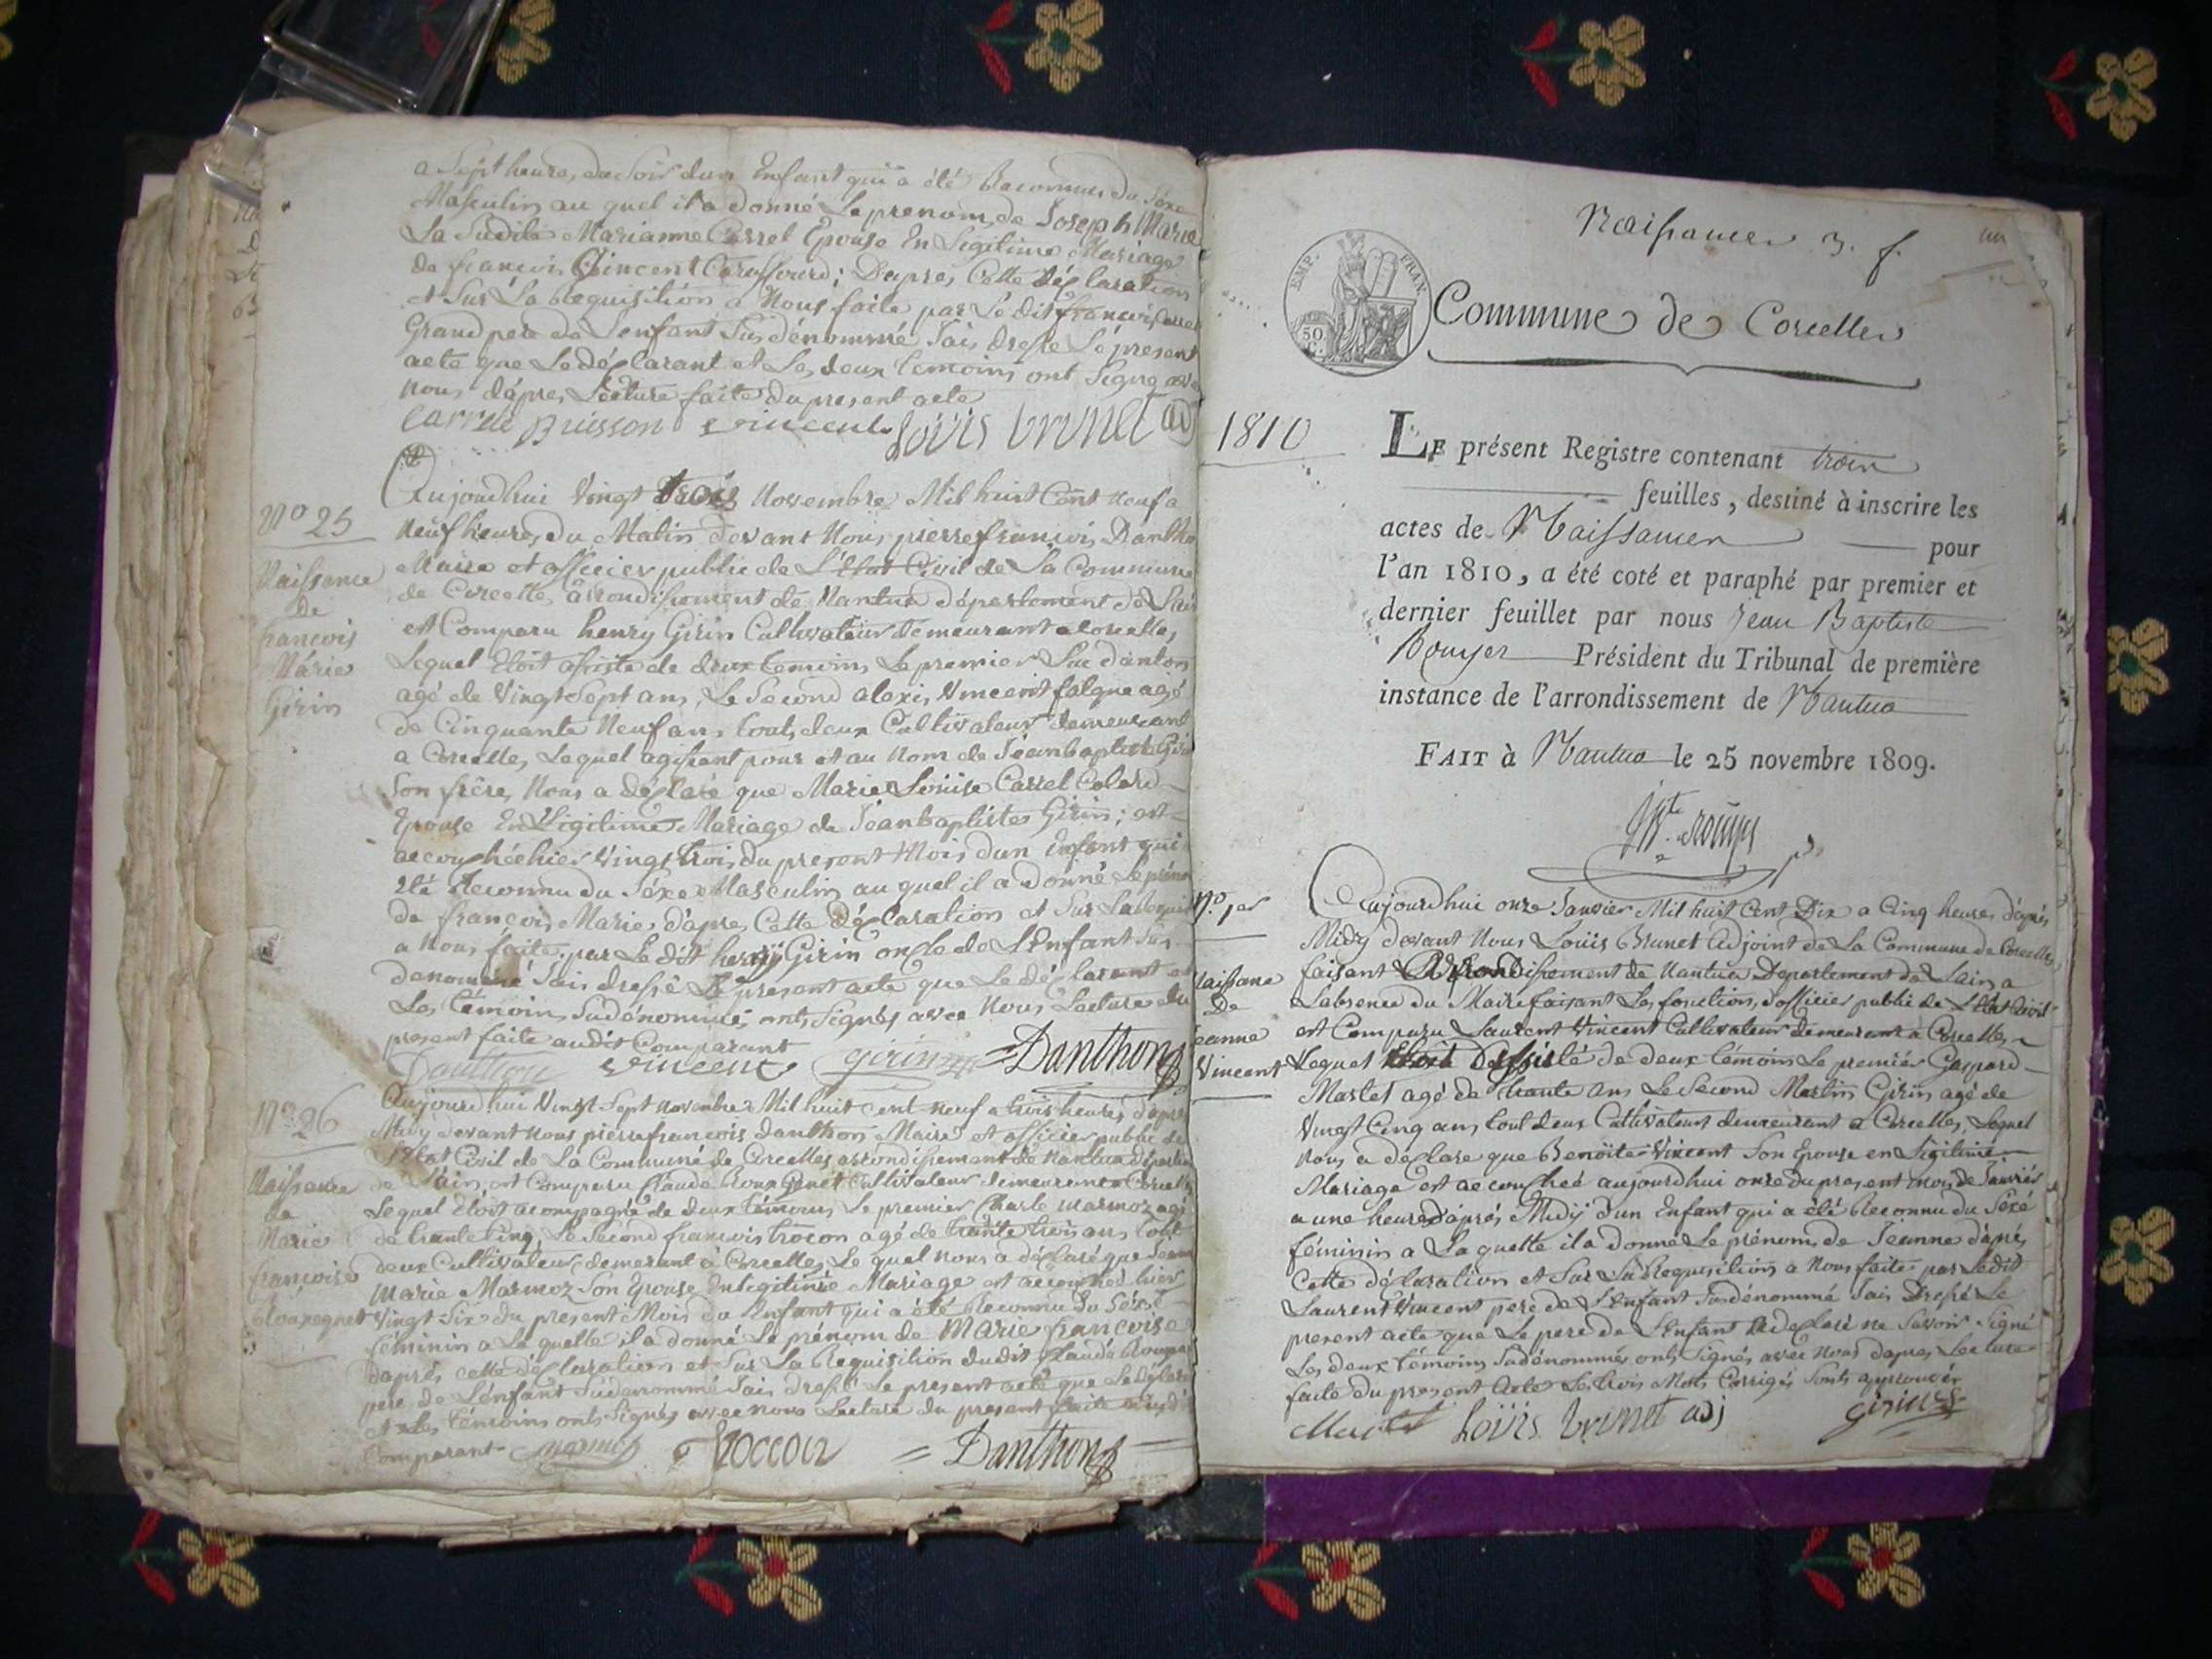 a Sept heures du Soir dun Enfant qui a été Reconnu du Séxe
Masculin au quel il a donné Le prenom de Joseph Marie
La Sudite Marianne Carrel Epouse En Legitime Mariage
de françois Vincent ; Dapres Cette Déclaration
et Sur La Requisition a Nous faite par Le dit françois Carrel
Grand pere de Lenfant Susdénommé Jais Dressé Le present
acte que Le déclarant et Les deux temoins ont Signe avec
nous dâpres Lecture faite du present acte
Carrel Brisson vincent Loüis brunet adj
Nº 25
Naissance
De
francois
Marie
Girin
Aujourdhui Vingt trois Novembre Mil huit Cent Neuf a
Neuf heures du Matin devant Nous pierre francois Dantho
Maire et officier public de L'état Civil de La Commune
de Corcelle, arrondissement de Nantua département de Lain
est Comparu henry Girin Cultivateur demeurant a Corcelles
Lequel Etoit assisté de deux temoins Le premier Luc danton
agé de Vingt Sept ans, Le Second alexis Vincent falque agé
de Cinquante Neuf ans tout deux Cultivateur demeurant
a Corcelles, Lequel agissant pour et au Nom de Jeanbaptiste Girin
Son frêre, Nous a déclaré que Marie Loüise Carrel
Epouse En Légitime Mariage de Jeanbaptiste Girin ; est
accouchée hier Vingt trois du present Mois dun Enfant qui a
été Reconnu du Séxe Masculin au quel il a donné Le prénom
de françois Marie, dâpres Cette Déclaration et Sur La Requisition
a Nous faite par Le dit henry Girin oncle de L'Enfant Sus
denommé Jais dressé Le present acte que Le déclarant et
Les témoins Sudénommés onts Signés avec Nous Lecture du
present faite audit Comparant
Danthon vincent girin Danthon
Nº 26
Naissance
de
Marie
francoise
Rouxegnet
Aujourdhui Vingt Sept Novembre Mil huit cent neuf a trois heures dapres
Midy devant Nous pierre francois danthon Maire et officier public de
l'état Civil de La Commune de Corcelles arrondissement de Nantua départem
de Lain, est Comparu Claude Roux Genet Cultivateur demeurant a Corcelle
Lequel étoit acompagné de deux témoins Le premier Charle marmoz agé
de trante Cinq, Le Second francois troccon agé de trante trois ans tout
deux Cultivateur demeurant à Corcelles Le quel nous a déclaré que Jeanne
Marie Marmoz Son Epouse En Legitime Mariage est accouchée hier
Vingt-Six du present Mois du Enfant qui a été Reconnu du Séxe
féminin a La quelle il a donné Le prénom de Marie francoise
Daprés cette déclaration et Sur La Requisition dudit Claude Rouxe
pere de Lenfant Sudenommé Jais dressé Le present acte que Le déclarant
et Les témoins onts Signés avec nous Lecture du present faite audit
Comparant marmoz troccon Danthon
Naissances 3. f.
EMP. FRAN.
50
C.
Commune de Corcelles
1810
LE présent Registre contenant trois
feuilles, destiné à inscrire les
actes de Naissances pour
l'an 1810, a été coté et paraphé par premier et
dernier feuillet par nous Jean Baptiste
Rouyer Président du Tribunal de première
instance de l'arrondissement de Nantua
FAIT à Nantua le 25 novembre 1809.
Jn Bte Rouyer
N.º 1er
Naissance
De
Jeanne
Vincent
Aujourdhui onze Janvier Mil huit Cent Dix a Cinq heures dâprés
Midy devant Nous Loüis Brunet adjoint de La Commune de Corcelles,
faisant Arrondissement de Nantua Departement de Lain, a
Labsence du Maire faisant Les fonctions d'officier public de L'état Civil
est Comparu Laurent Vincent Cultivateur demeurant a Corcelles
Lequel Etoit assisté de deux témoins Le premiér Gaspard
Martel agé de trante ans Le Second Martin Girin agé de
Vingt Cinq ans tout deux Cultivateurs demeurant a Corcelles, Lequel
Nous a déclare que Benoite Vincent Son Epouse en Légitime
Mariage est accouchée aujourdhui onze du present mois de Janvier
a une heure d'aprés Midy d'un Enfant qui a été Reconnu du Séxe
féminin a La quelle il a donné Le prénom de Jeanne dâpré,
Cette déclaration et Sur La Requisition a Nous faite par Ledit
Laurent Vincent pere de L'Enfant Sudénommé Jais Dressé Le
present acte que Le pere de L'Enfant a déclaré ne Savoir Signé
Les deux témoins Sudénommés onts Signés avec Nous dapres Lecture
faite du present Acte Les trois Mots Corrigés Sonts approuvér
Martel Loüis brunet adj girin